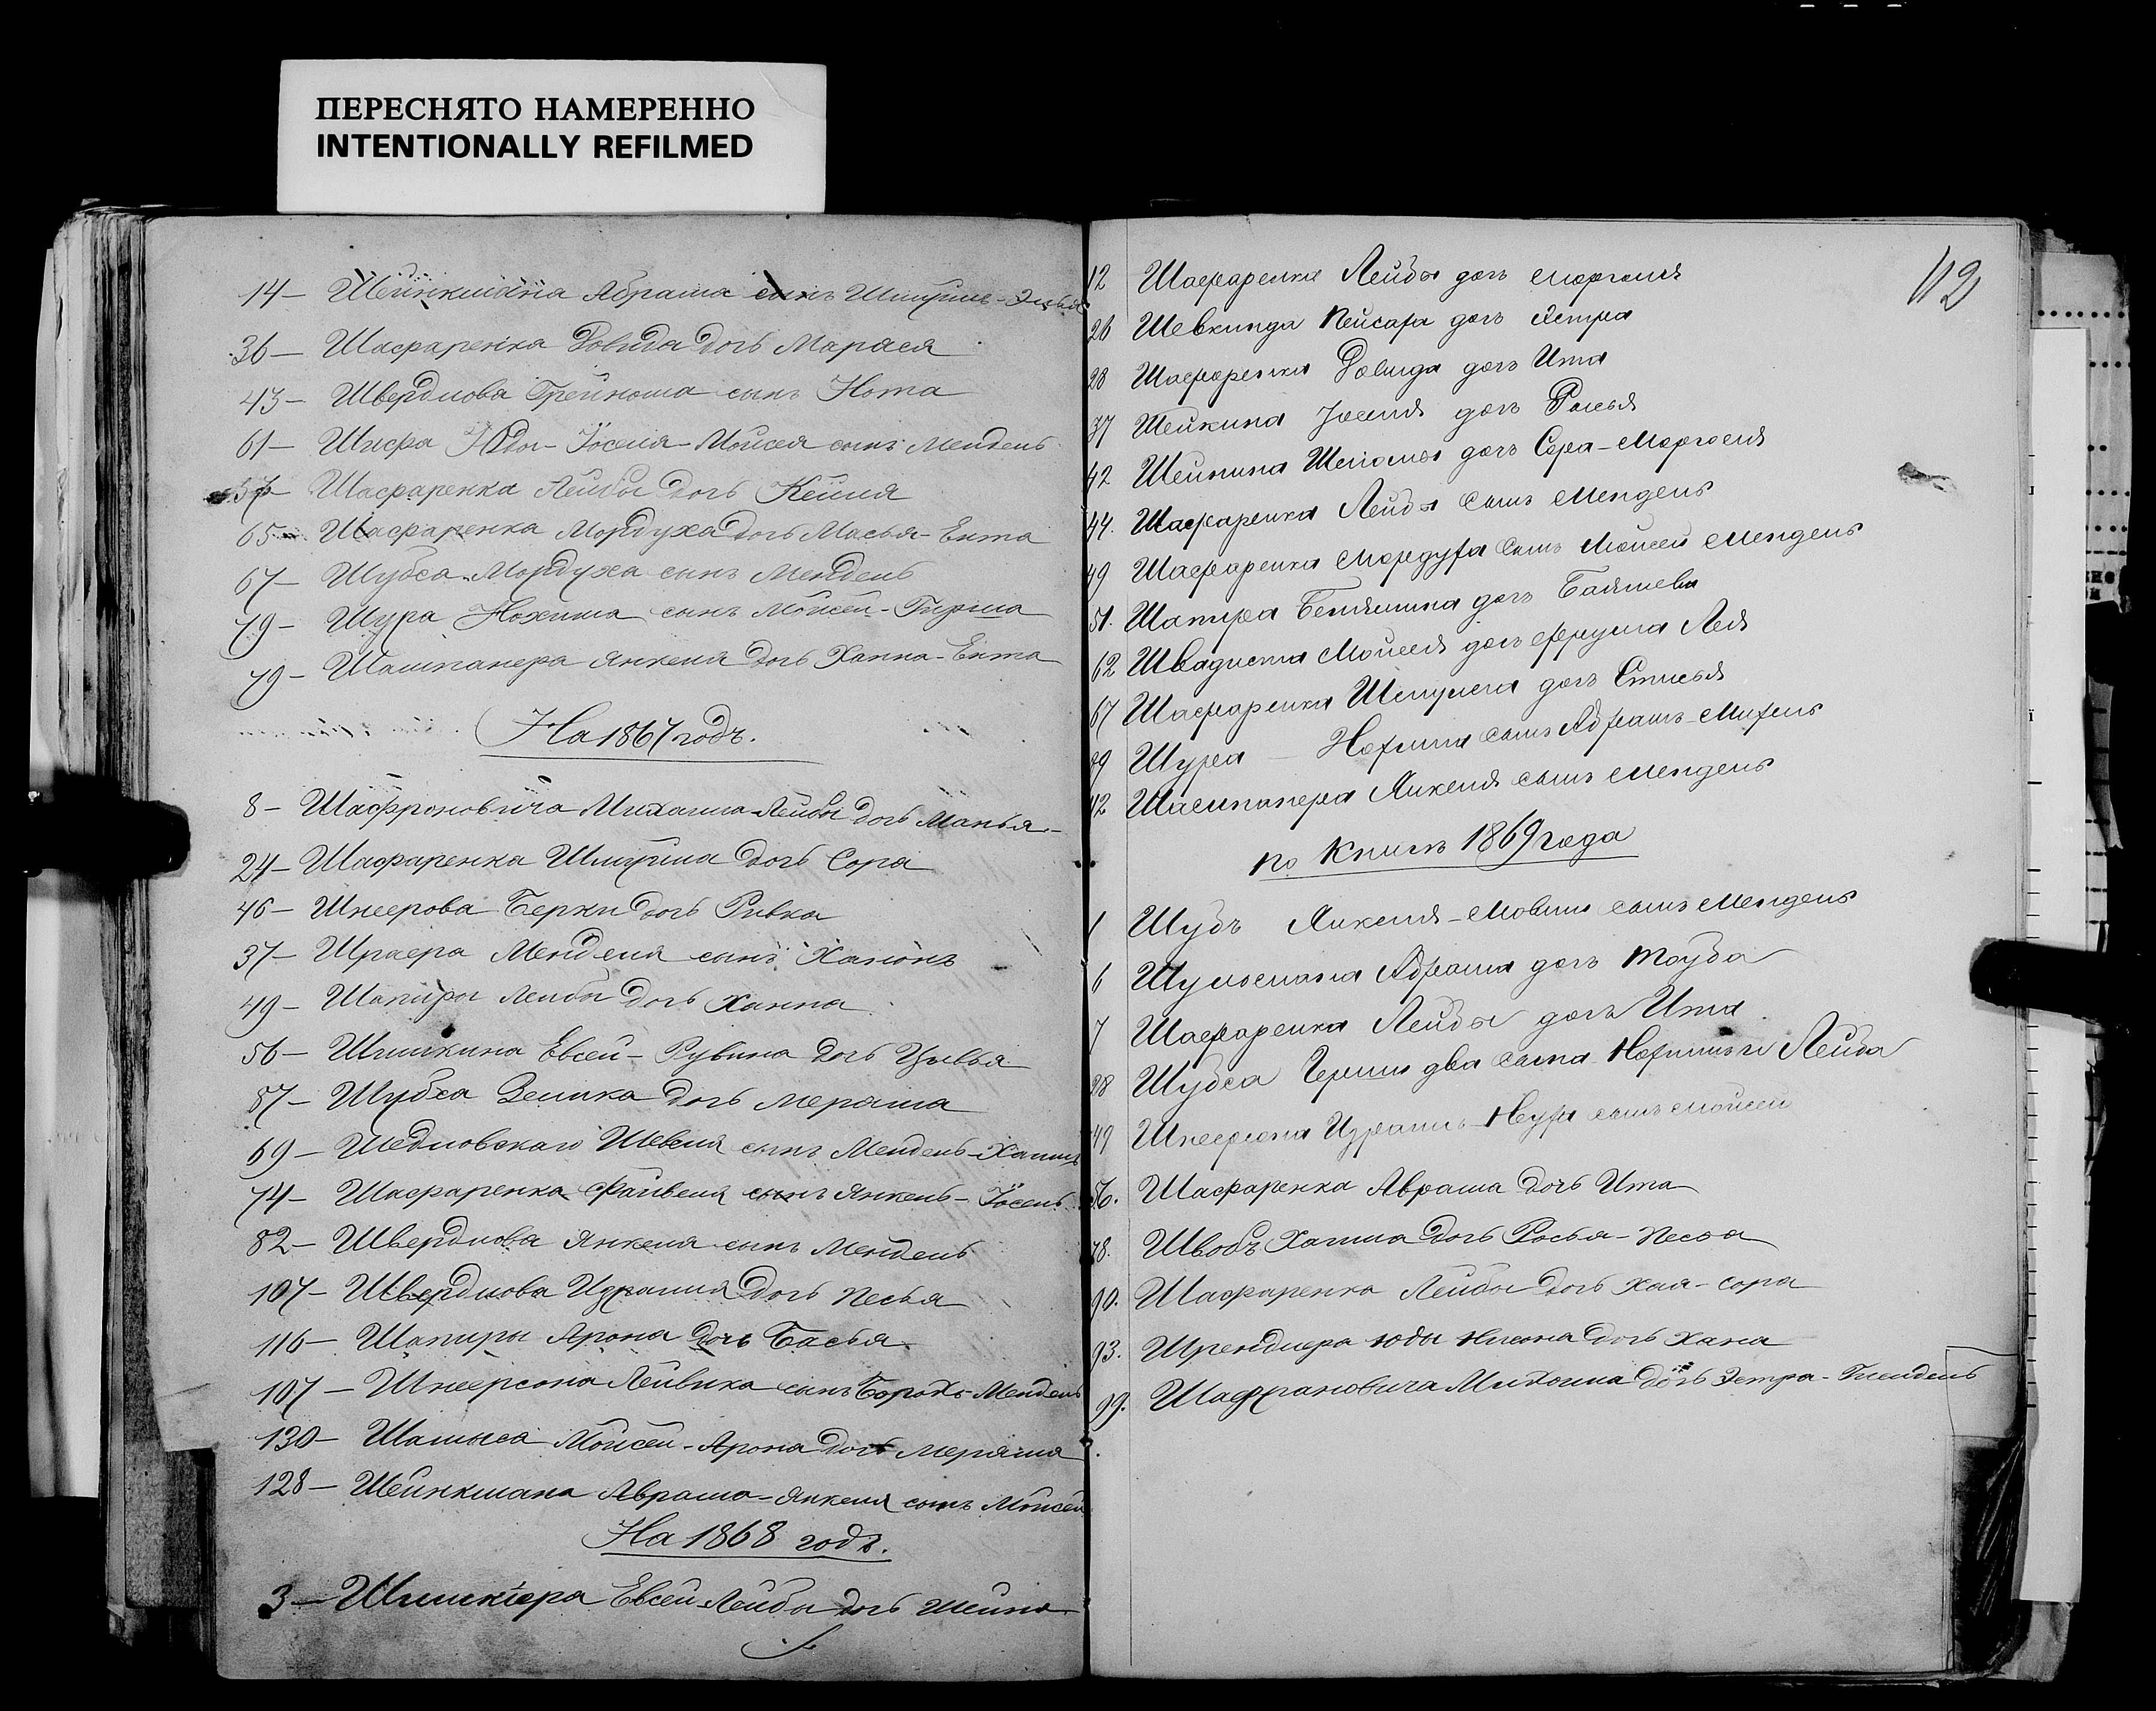 ПЕРЕСНЯТО НАМЕРЕННО
INTENTIONALLY REFILMED
14 – Шейнкмана Абрама сынъ
36 – Шафаренка Довида дочь Марася
43 – Швердлова сынъ Нота
61 – Шифра Іоселя-Мойсея сынъ Мендель
57 – Шафаренка Лейбы дочь Кейля
65 – Шафаренка Мордуха дочь Масья-Ента
67 – Шубса Мордуха сынъ Мендель
79 – Шура Нохима сынъ Мойсей-Гирша
79 – Шампанера Янкеля дочь Ханна-Ента
На 1867 годъ.
8 – Шафроновича Михаила-Лейбы дочь Манья
24 – Шафаренка Шмуйла дочь Сора
46 – Шнеерова Берки дочь Ривка
37 – Шраера Менделя сынъ
49 – Шапиры Лейбы дочь Ханна
56 – Шишкина Евсей-Рувина дочь Цивья
87 – Шубса Зелика дочь Мераша
69 – Шедловскаго Шевеля сынъ Мендель-Хаимъ
74 – Шафаренка Файвеля сынъ Янкель-Іосель
82 – Швердлова Янкеля сынъ Мендель
107 – Швердлова Израиля дочь Песья
116 – Шапиры Арона дочь Басья
107 – Шнеерсона Лейвика сынъ Борохъ-Мендель
130 – Шамыса Мойсей-Арона дочь Меряша
128 – Шейнкмана Абрама-Янкеля сынъ Мойсей
На 1868 годъ.
3 – Евсей-Лейбы дочь Шейна
112
12 Шафаренка Лейбы дочь Морголя
26 Шевкинда Пейсаха дочь Эстра
28 Шафаренка Довида дочь Ита
37 Шейкина Іоселя дочь Рысья
42 Шейнина Шеломы дочь Сора-Морголя
44. Шафаренка Лейбы сынъ Мендель
49 Шафаренка Мордуха сынъ Мойсей Мендель
51. Шапира Беньямина дочь Башева
62 Мойсея дочь Фрума Лея
67 Шафаренка Шмуйла дочь Стисья
89 Шура – Нохима сынъ Абрамъ-Михель
42 Шампанера Янкеля сынъ Мендель
По Книгѣ 1869 года
1 Шубъ Янкеля-Мовши сынъ Мендель
6 Шульмана Абрама дочь Тауба
7 Шафаренка Лейбы дочь Ита
28 Шубса Герши два сына Нохимъ и Лейба
49 Шнеерсона Израиль-Ноха сынъ Мойсей
56. Шафаренка Абрама дочь Ита
78. Швобъ Хаима дочь Росья-Песья
90. Шафаренка Лейбы дочь Хая-Сора
93. Шрендлера Юды Нисона дочь Хана
99. Шафрановича Михоила дочь Эстра-